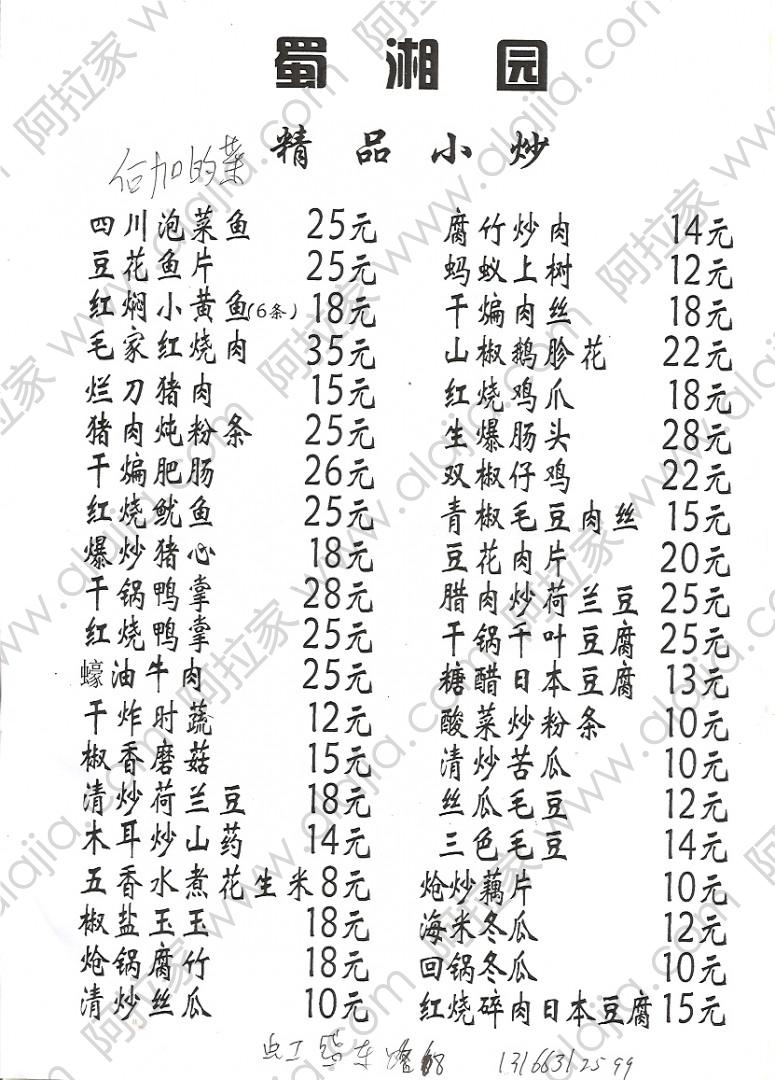 蜀湘园
精品小炒
四川泡菜鱼 25元
豆花鱼片 25元
红焖小黄鱼(6条) 18元
毛家红烧肉 35元
烂刀猪肉 15元
猪肉炖粉条 25元
干煸肥肠 26元
红烧鱿鱼 25元
爆炒猪心 18元
干锅鸭掌 28元
红烧鸭掌 25元
蠔油牛肉 25元
干炸时蔬 12元
椒香磨菇 15元
清炒荷兰豆 18元
木耳炒山药 14元
五香水煮花生米 8元
椒盐玉玉 18元
炝锅腐竹 18元
清炒丝瓜 10元
腐竹炒肉 14元
蚂蚁上树 12元
干煸肉丝 18元
山椒鹅胗花 22元
红烧鸡爪 18元
生爆肠头 28元
双椒仔鸡 22元
青椒毛豆肉丝 15元
豆花肉片 20元
腊肉炒荷兰豆 25元
干锅千叶豆腐 25元
糖醋日本豆腐 13元
酸菜炒粉条 10元
清炒苦瓜 10元
丝瓜毛豆 12元
三色毛豆 14元
炝炒藕片 10元
海米冬瓜 12元
回锅冬瓜 10元
红烧碎肉日本豆腐 15元
13166312599
阿拉家 www.alajia.com